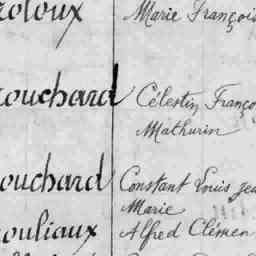 roloux Marie Françoi
rouchard Célestin, Franço
Mathurin
ouchard Constant Louis Jea
Marie
ouliaux Alfred Clémen